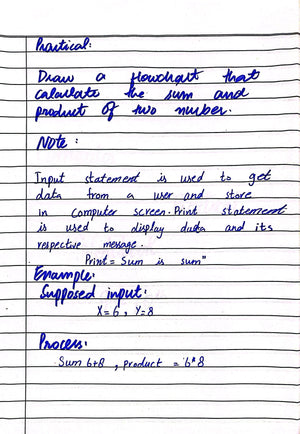 Practical:
Draw a flowchart that
calculate the sum and
product of two number.
Note :
Input statement is used to get
data from a user and store
in computer screen. Print statement
is used to display data and its
respective message.
Print = Sum is sum"
Example:
Supposed input:
X=6, Y=8
Process:
Sum 6+8, product = 6*8